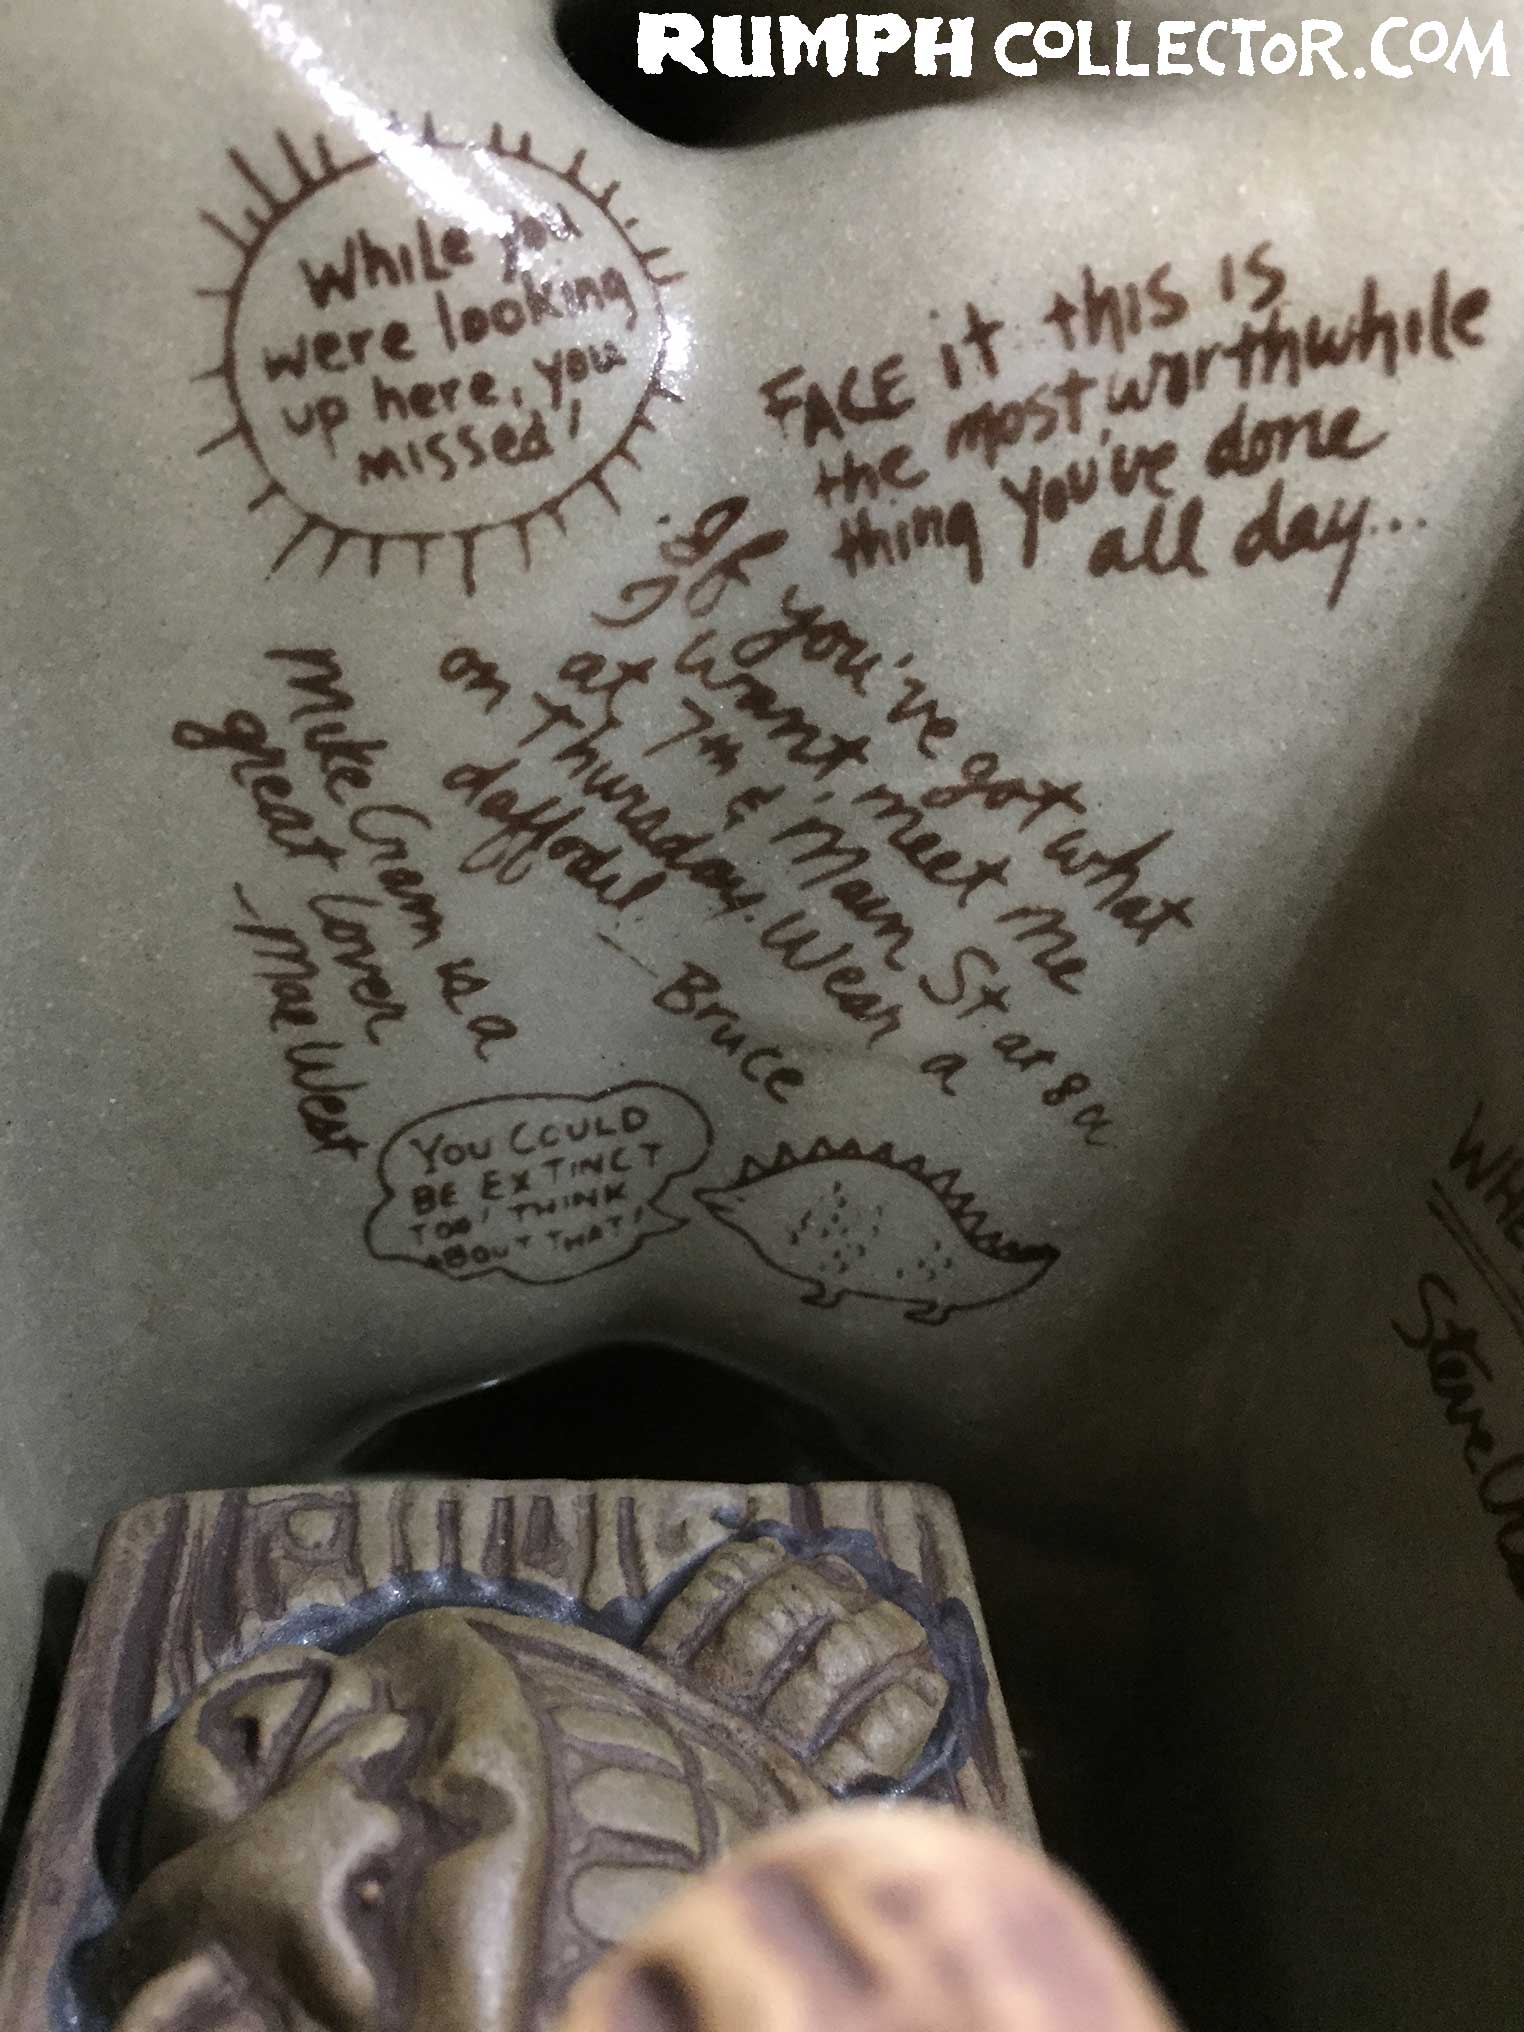 RUMPH COLLECTOR.COM
While you
were looking
up here, you
missed!
FACE it this is
the most worthwhile
thing you've done
all day...
If you've got what
I want, meet me
at 7th & Main St at 8a
on Thursday. Wear a
daffodil.
— Bruce
Mike Cram is a
great lover
- Mae West
YOU COULD
BE EXTINCT
TOO! THINK
ABOUT THAT!
WHE
Steve